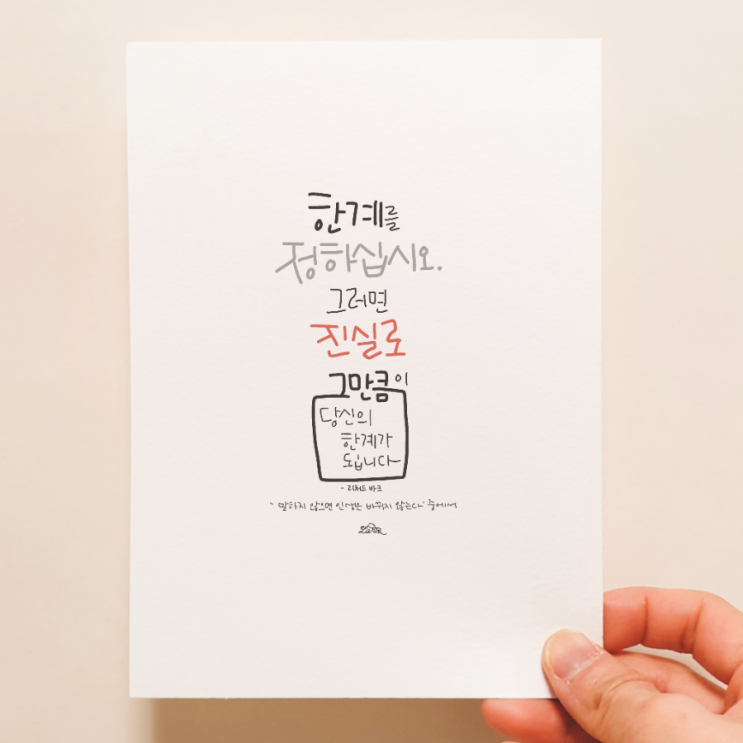 한계를
정하십시오.
그러면
진실로
그만큼이
당신의
한계가
됩니다
- 리처드 바크
- 말하지 않으면 인생은 바뀌지 않는다' 중에서